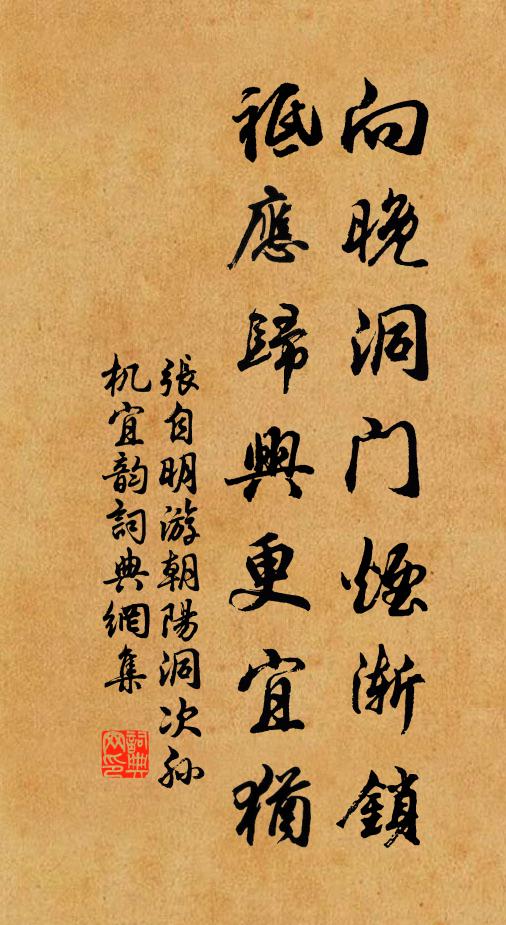 向晚洞门煙渐鎖
祗應歸興更宜猶
張自明游朝陽洞次孙
机宜韵詞典網集
詞典網印